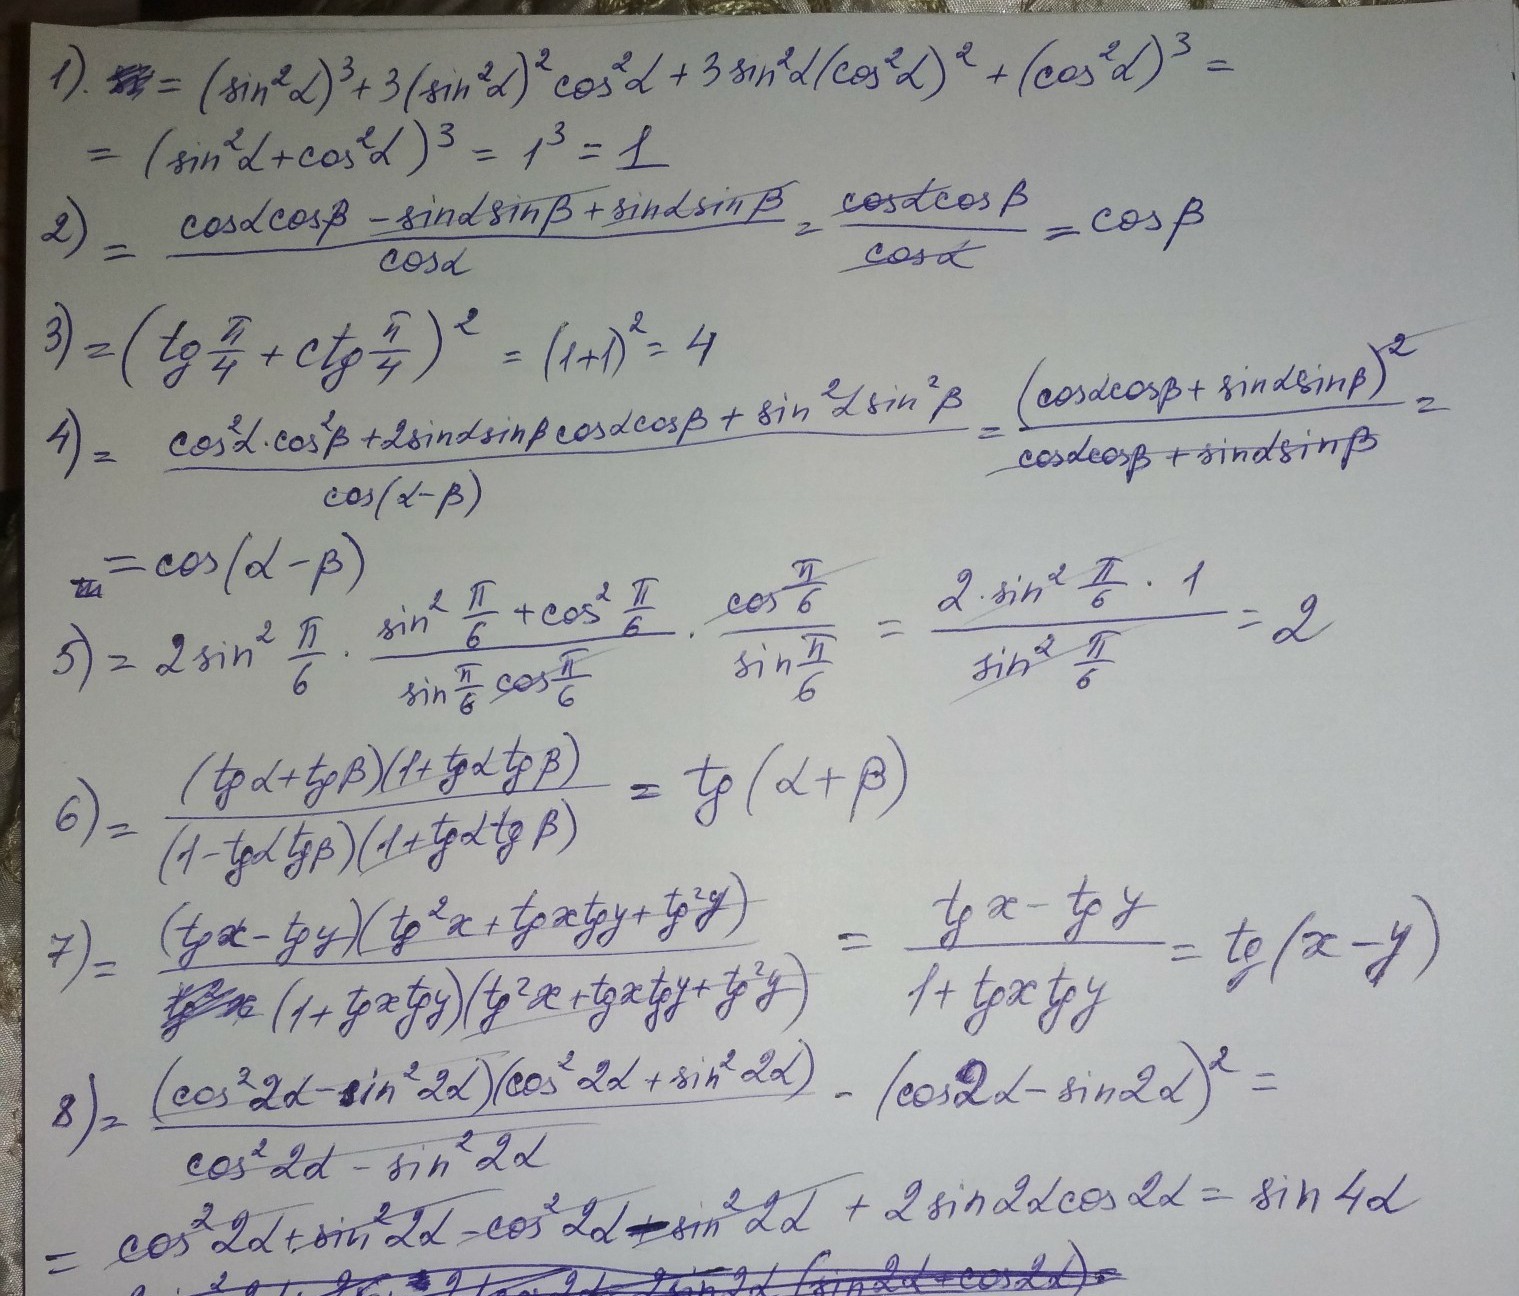 1). = (sin²α)³ + 3(sin²α)² cos²α + 3 sin²α(cos²α)² + (cos²α)³ =
= (sin²α + cos²α)³ = 1³ = 1
2) = (cosαcosβ - sinαsinβ + sinαsinβ)/cosα = cosαcosβ/cosα = cosβ
3) = (tg π/4 + ctg π/4)² = (1+1)² = 4
4) = (cos²α·cos²β + 2sinαsinβcosαcosβ + sin²αsin²β)/cos(α-β) = (cosαcosβ + sinαsinβ)²/(cosαcosβ + sinαsinβ) =
= cos(α-β)
5) = 2sin² π/6 · (sin² π/6 + cos² π/6)/(sin π/6 cos π/6) · (cos π/6)/(sin π/6) = (2·sin² π/6 · 1)/(sin² π/6) = 2
6) = (tgα+tgβ)(1+tgαtgβ)/(1-tgαtgβ)(1+tgαtgβ) = tg(α+β)
7) = (tgx - tgy)(tg²x + tgxtgy + tg²y)/(1+tgxtgy)(tg²x + tgxtgy + tg²y) = (tgx - tgy)/(1 + tgxtgy) = tg(x-y)
8) = (cos²2α - sin²2α)(cos²2α + sin²2α)/(cos²2α - sin²2α) - (cos2α - sin2α)² =
= cos²2α + sin²2α - cos²2α - sin²2α + 2sin2αcos2α = sin4α